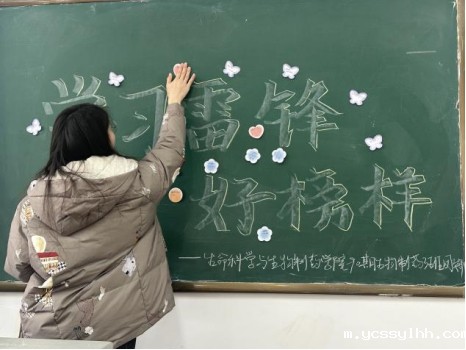 学习雷锋
好榜样
——生命科学与生物制药学院
m.ycssylhh.com